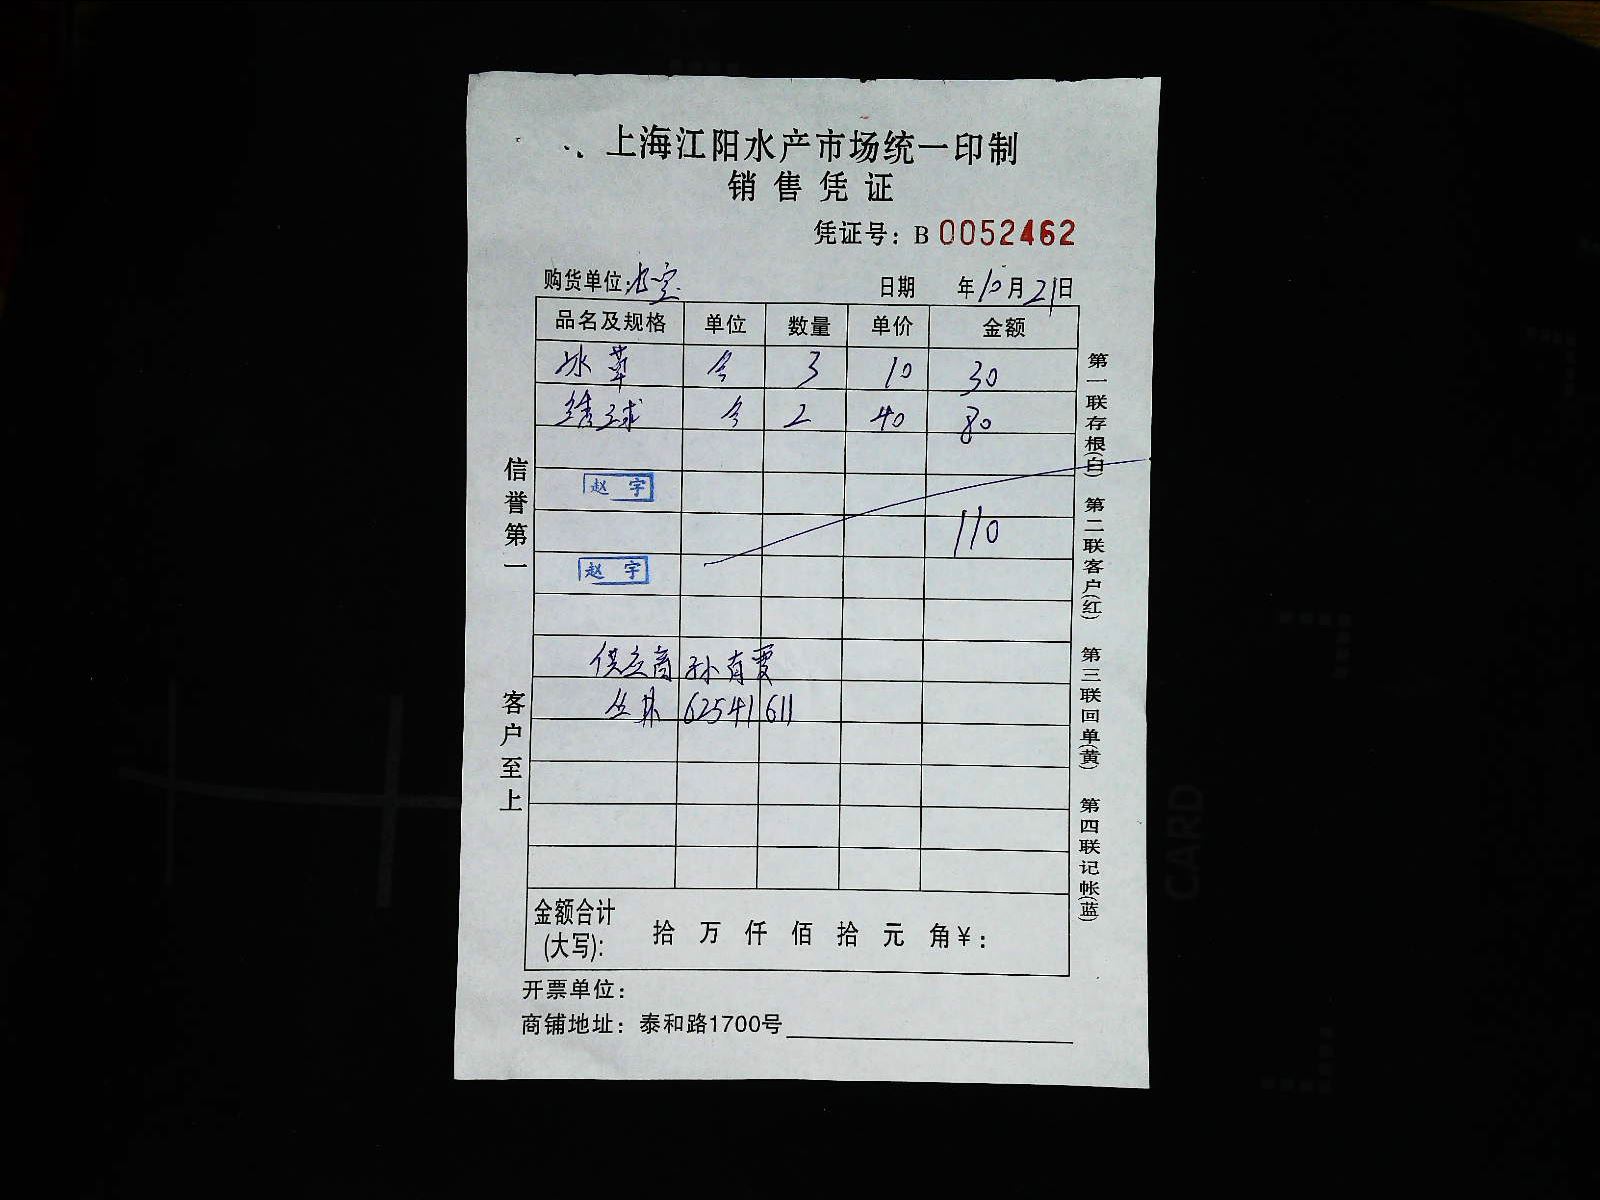 上海江阳水产市场统一印制
销售凭证
凭证号：B 0052462
购货单位： 日期 年10月21日
品名及规格 单位 数量 单价 金额
冰草 个 3 10 30
绣球 个 2 40 80
赵宇
110
赵宇
供应商 孙有贾
丛林 62541611
金额合计(大写): 拾 万 仟 佰 拾 元 角 ¥:
开票单位：
商铺地址：泰和路1700号
信誉第一
客户至上
第一联存根(白)
第二联客户(红)
第三联回单(黄)
第四联记帐(蓝)
CARD